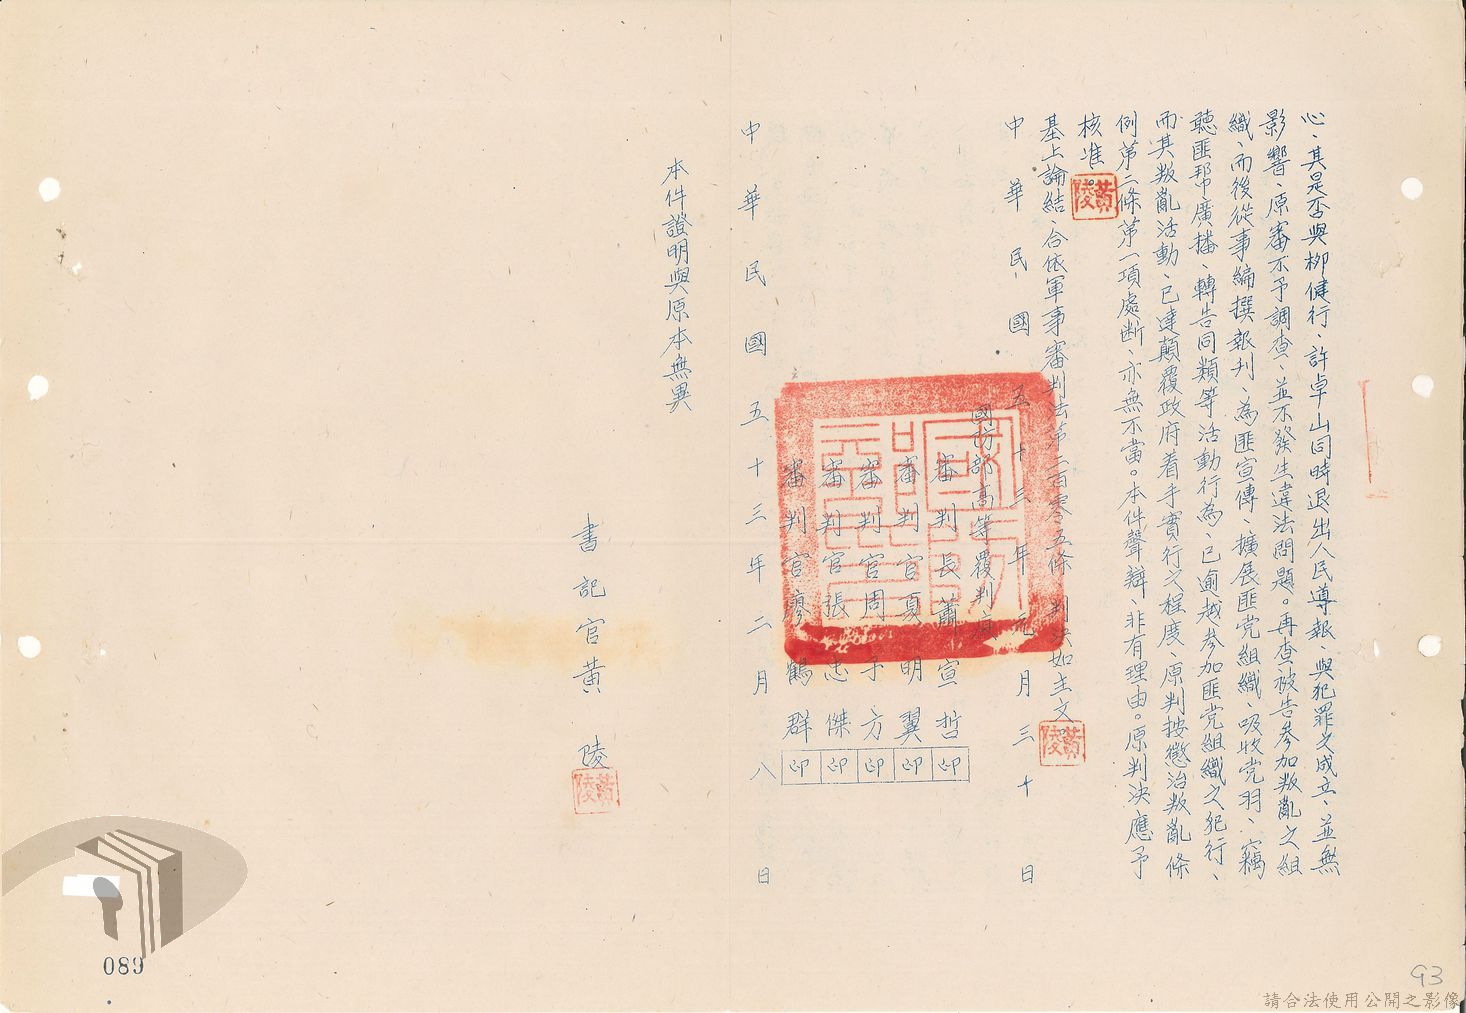 心、其是否與柳健行、許卓山同時退出人民導報、與犯罪之成立、並無
影響、原審不予調查、並不發生違法問題。再查被告參加叛亂之組
織、而後從事編撰報刊、為匪宣傳、擴展匪党組織、吸收党羽、竊
聽匪幫廣播、轉告同類等活動行為、已逾越參加匪党組織之犯行、
而其叛亂活動、已達顛覆政府着手實行之程度、原判按懲治叛亂條
例第二條第一項處断、亦無不當。本件聲辯、非有理由。原判決應予
核准。
黃陵
基上論結、合依軍事審判法第二百零五條、判決如主文。
黃陵
中華民國五十三年元月三十日
國防部高等覆判庭
審判長蕭宣哲 印
審判官夏明翼 印
審判官周子方 印
審判官張忠傑 印
審判官廖鶴群 印
中華民國五十三年二月八日
本件證明與原本無異
書記官黃陵
黃陵
089
93
請合法使用公開之影像